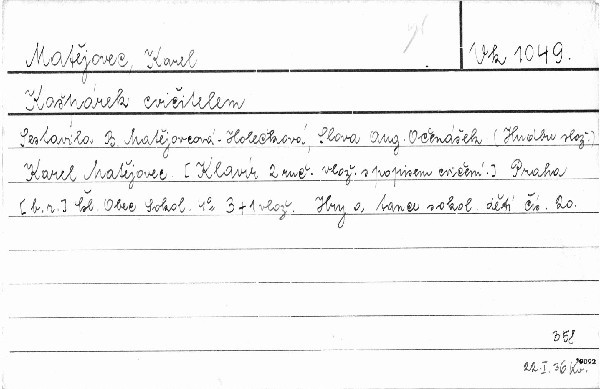 Matějovec, Karel
Vk 1049.
Kašpárek cvičitelem
Sestavila B. Matějovcová-Holečková, Slova Aug. Očenášek (Hudbu slož.)
Karel Matějovec. [Klavír 2 ruč. vlož. s popisem cvičení.] Praha
[b.r.] Čsl. Obec Sokol. 1° 3+1 vlož. Hry a tance sokol. dětí Čís. 20.
358
22.I.36 Kv.